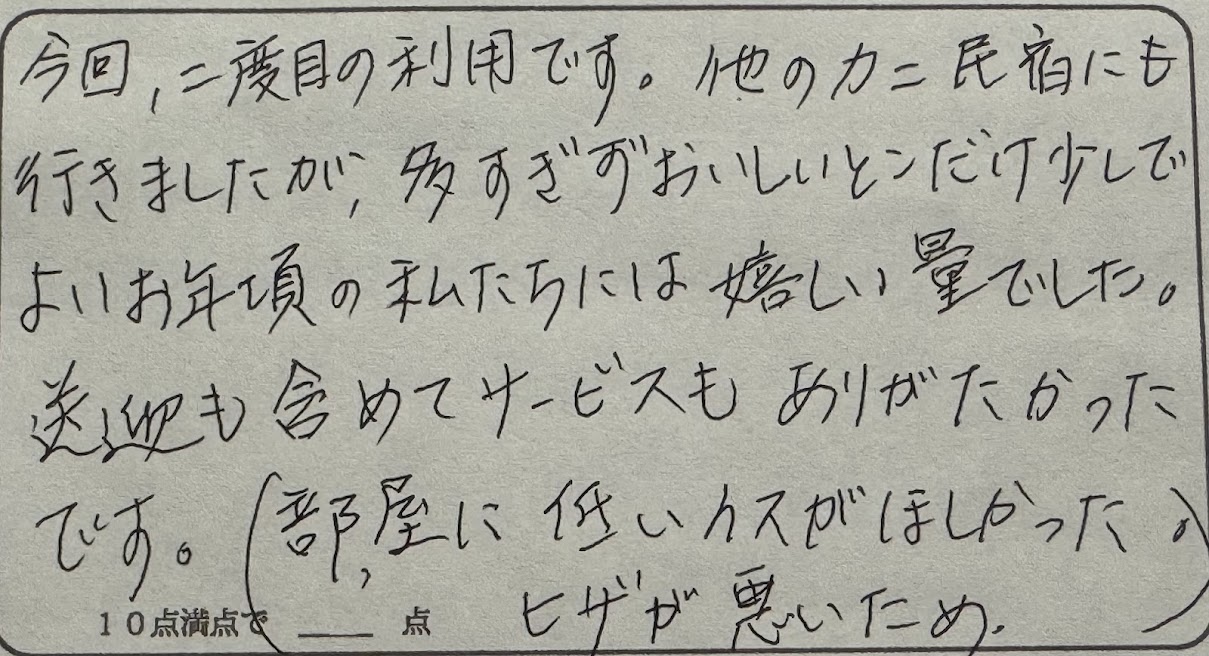 今回、二度目の利用です。他のカニ民宿にも
行きましたが、多すぎずおいしいとこだけ少しで
よいお年頃の私たちには嬉しい量でした。
送迎も含めてサービスもありがたかった
です。(部屋に低いイスがほしかった。
ヒザが悪いため。)
10点満点で 点